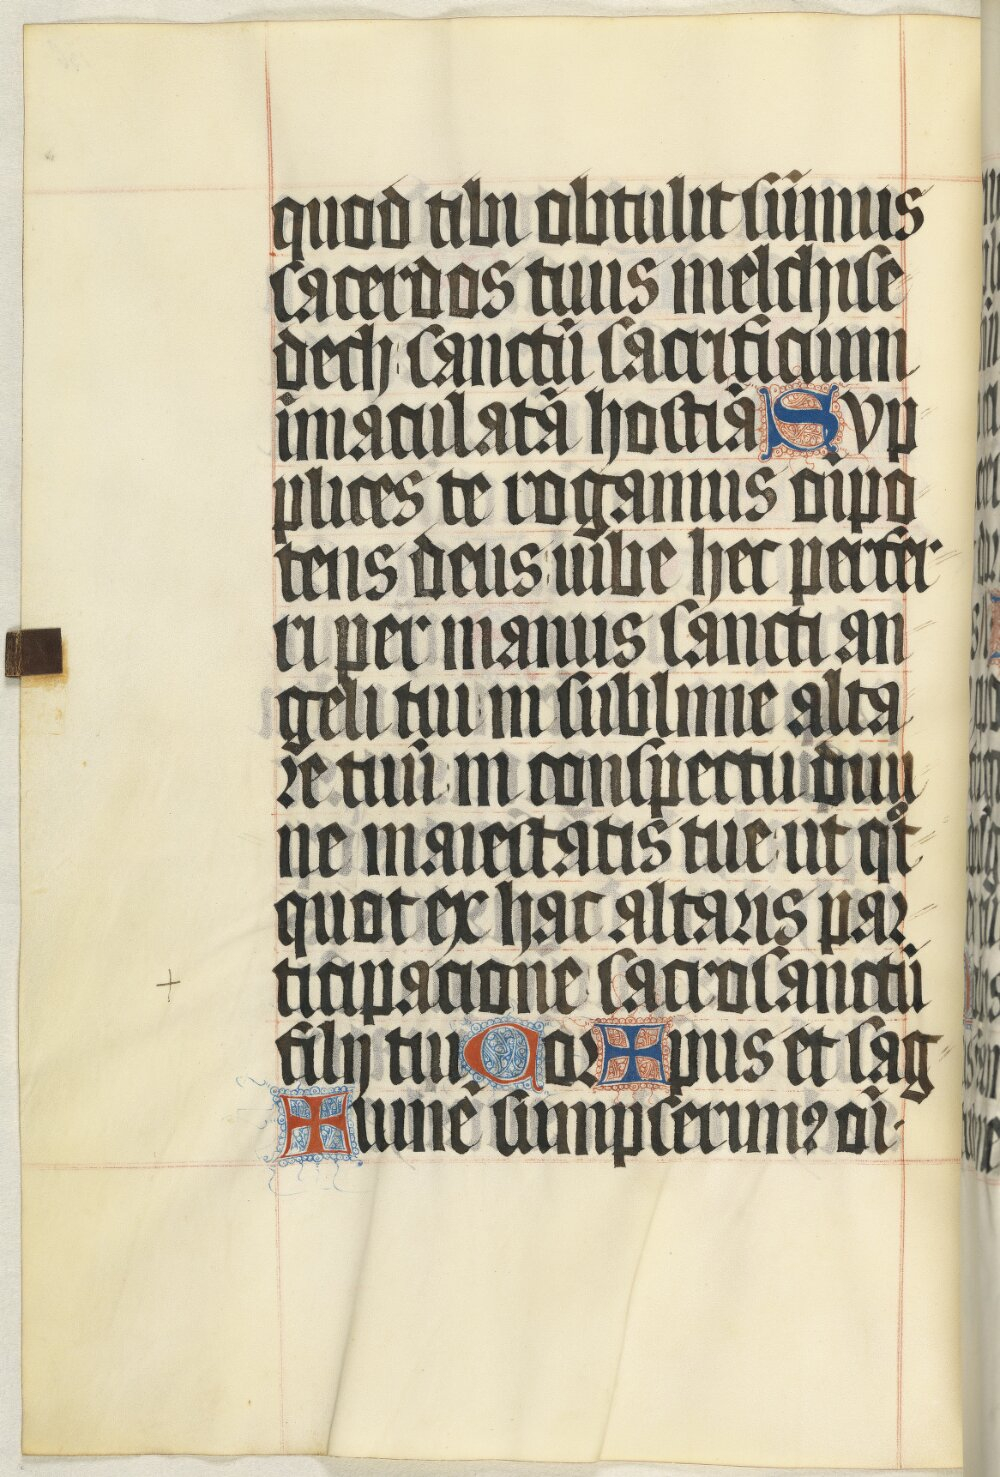 quod tibi obtulit sūmus
sacerdos tuus melchise
dech: sanctū sacrificium
īmaculatā hostiā Svp
plices te rogamus oīpo
tens deus: iube hec perfer
ri per manus sancti an
geli tui in sublime alta
re tuū: in conspectu diui
ne maiestatis tue: ut qͦt
quot ex hac altaris par
ticipacione sacrosanctū
filij tui Cor✠pus et sag
✠uinē sumpserim9 oī·